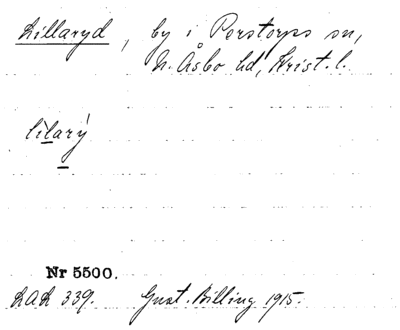 Lillaryd, by i Perstorps sn,
N. Åsbo hd, Krist. l.
lìlarý
Nr 5500.
LAL 339. Gust. Billing 1915.